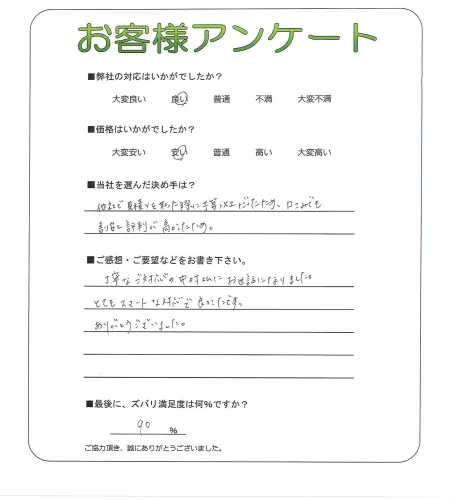 お客様アンケート
■弊社の対応はいかがでしたか？
大変良い 良い 普通 不満 大変不満
■価格はいかがでしたか？
大変安い 安い 普通 高い 大変高い
■当社を選んだ決め手は？
他社で見積りを取った際に予算以上だったため、口コミでも
割安と評判が高かったため。
■ご感想・ご要望などをお書き下さい。
丁寧なご対応の中村さんにお世話になりました
とてもスマートな対応で良かったです。
ありがとうございました。
■最後に、ズバリ満足度は何%ですか？
90 %
ご協力頂き、誠にありがとうございました。